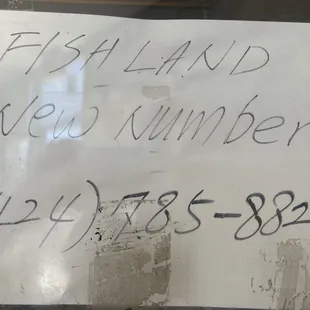 FISH LAND
New Number
424) 785-882